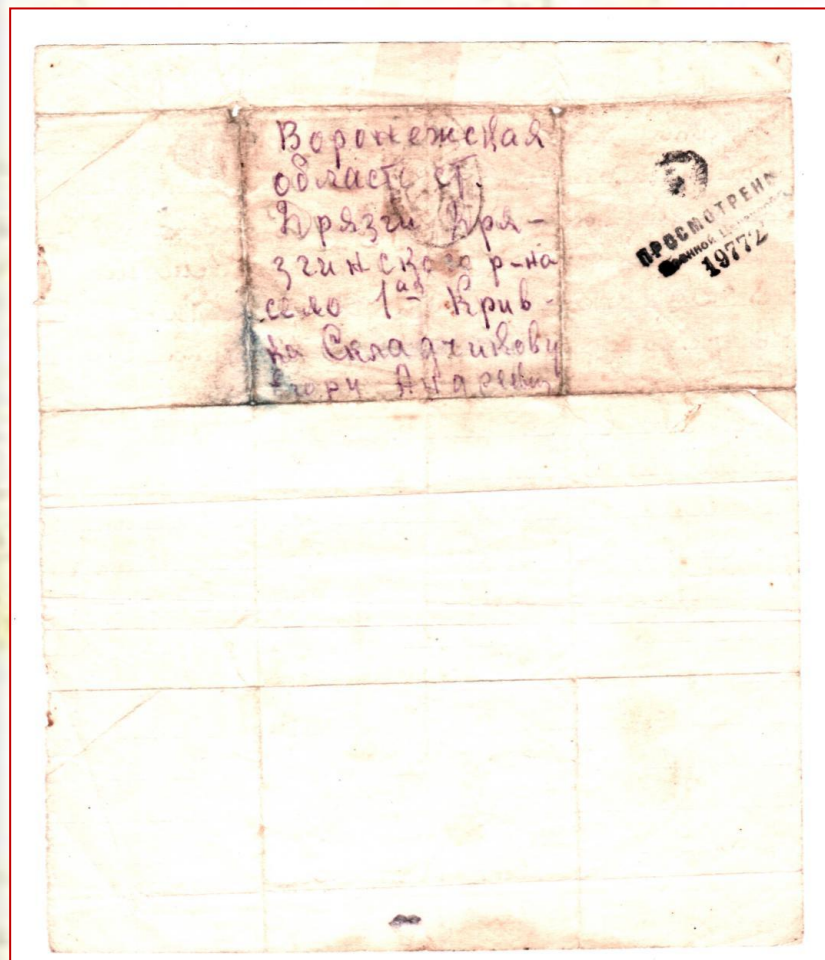 Воронежская
область ст.
Дрязги Дря-
згинского р-на
село 1ая Крив-
ка Складчикову
Егору Андреевичу
ПРОСМОТРЕНО
Военной Цензурой
19772